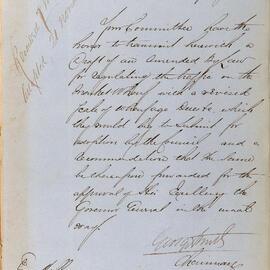 Your Committee have the
honor to transmit herewith a
Draft of an Amended By Law
for regulating the traffic on the
Market Wharf with a revised
scale of Wharfage Dues &c, which
they would beg to submit for
adoption by the Council and a
recommendation that the same
be thereafter forwarded for the
approval of His Excellency the
Governor General in the usual
way.
George Smith
Chairman